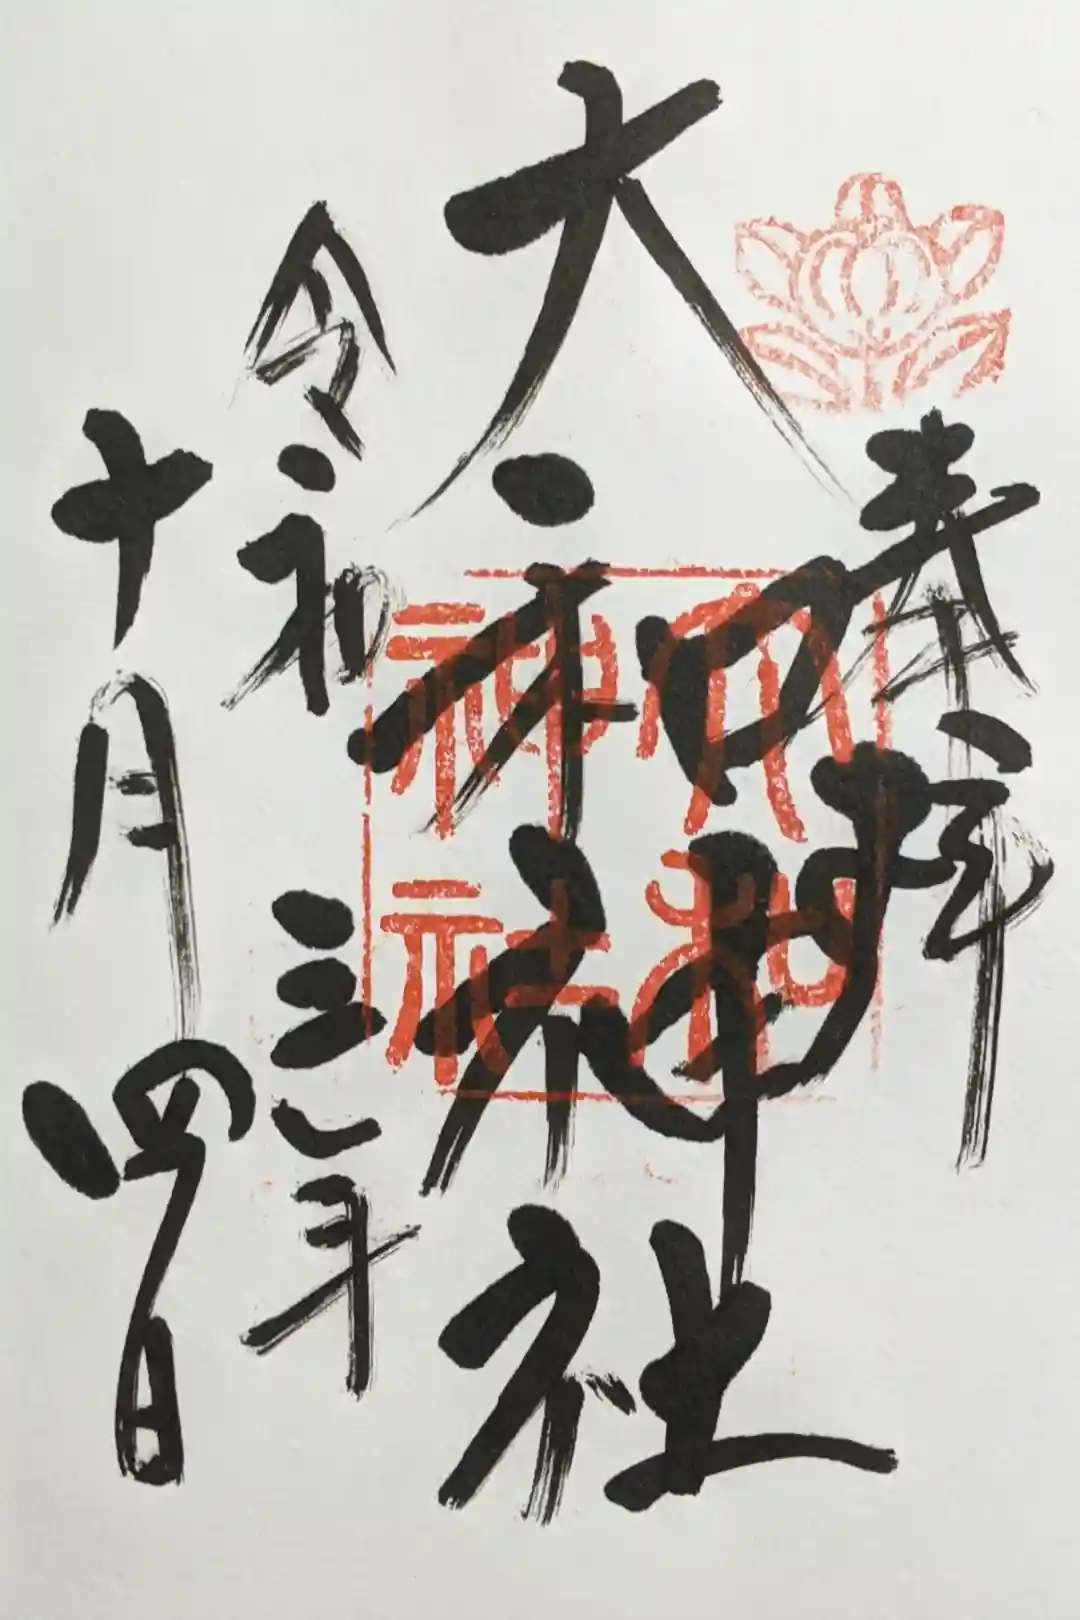 奉拝
大和神社
令和三年
十月四日
大和神社